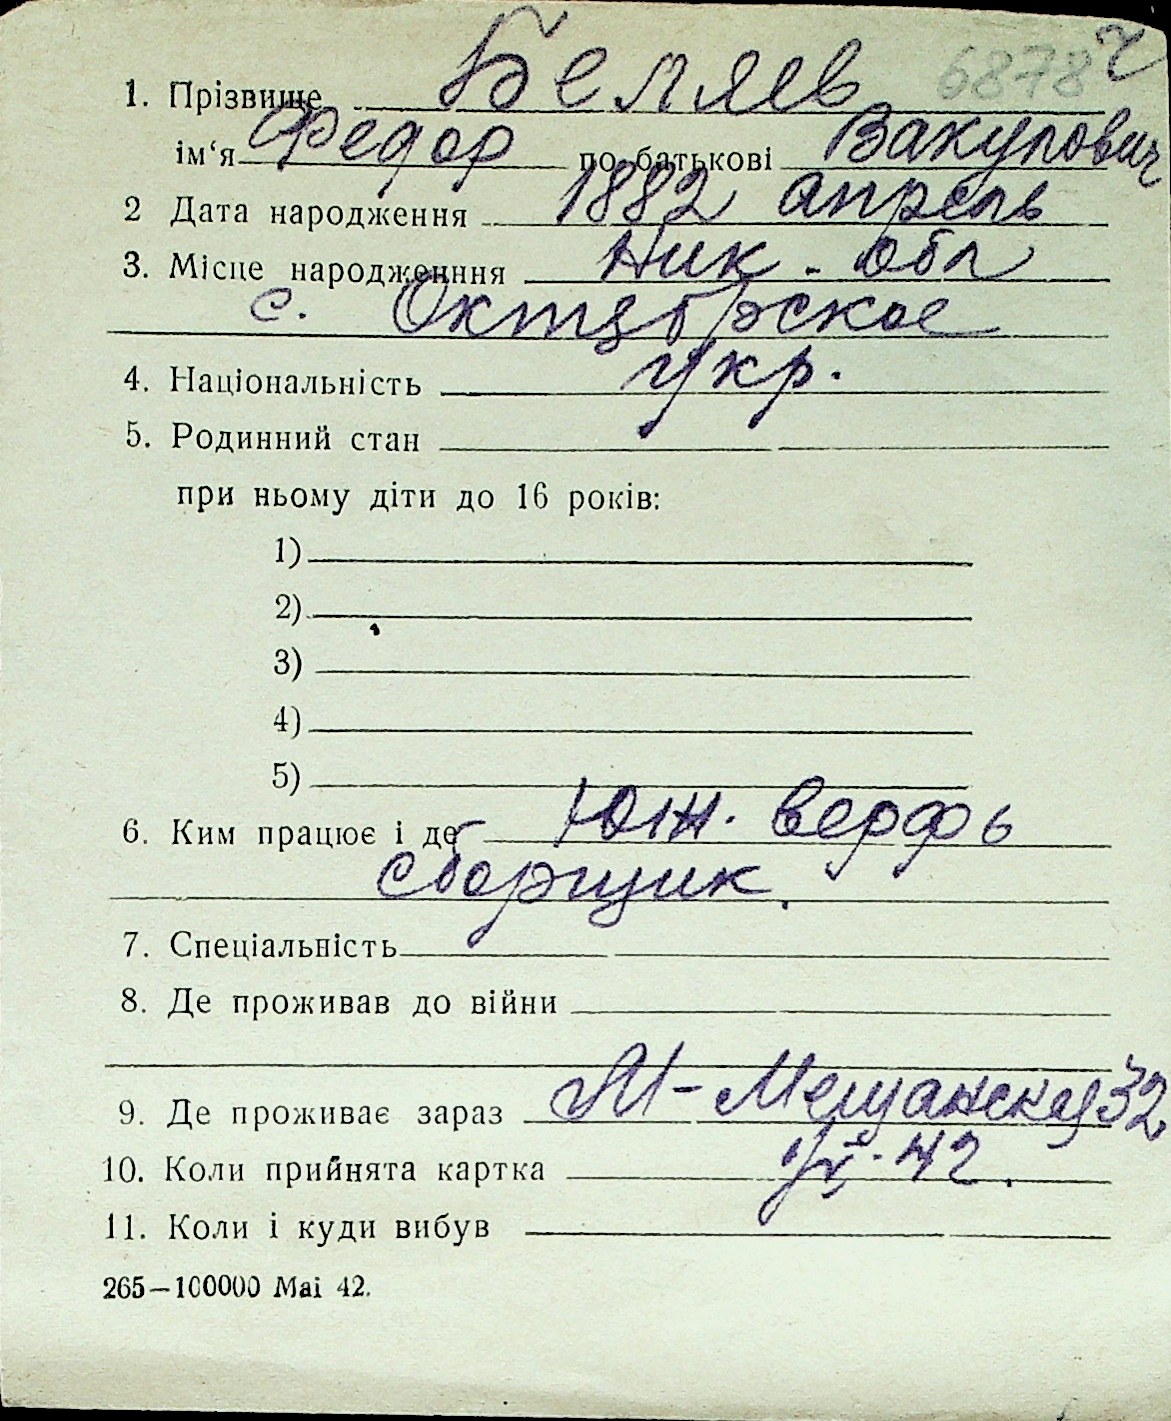 6878 2
1. Прізвище Беляев
ім‘я Федор по батькові Вакулович
2 Дата народження 1882 апрель
3. Місце народженння Ник. обл
с. Октябрское
4. Національність Укр.
5. Родинний стан
при ньому діти до 16 років:
1)
2)
3)
4)
5)
6. Ким працює і де Юж. верфь
сборщик.
7. Спеціальність
8. Де проживав до війни
9. Де проживає зараз М-Мещанская 32
10. Коли прийнята картка 42.
11. Коли і куди вибув
265—100000 Маі 42.